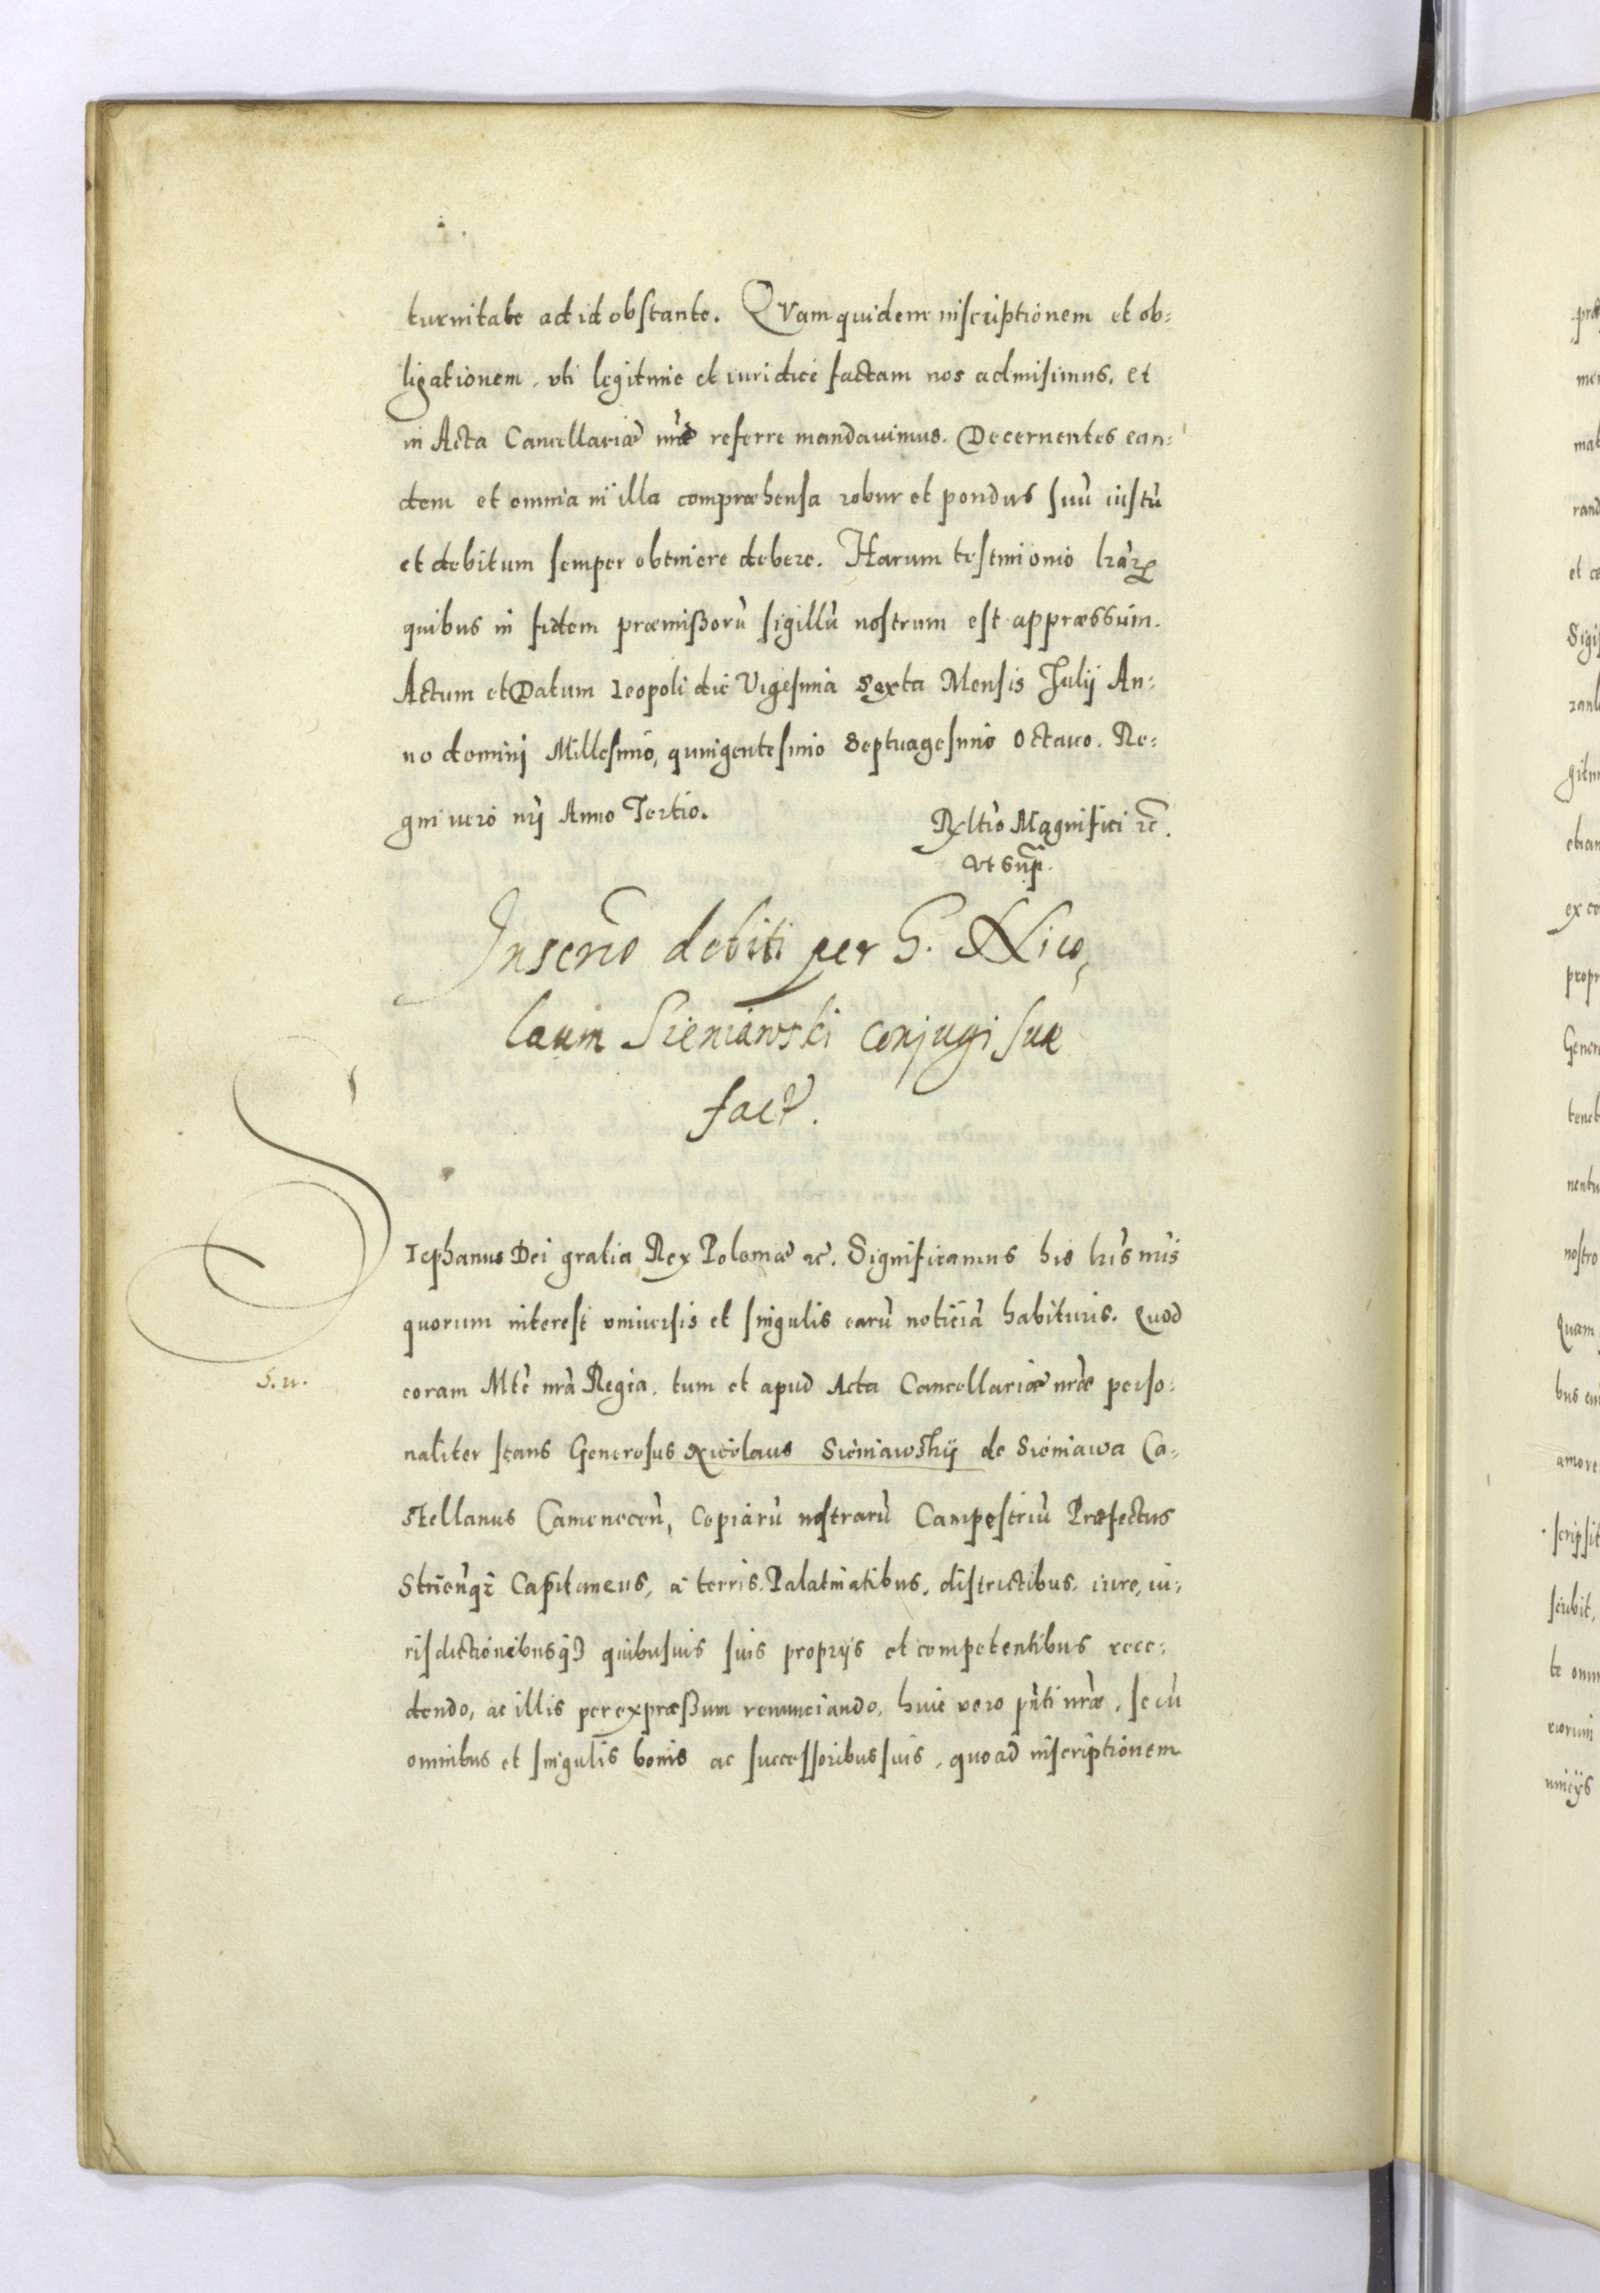 turnitate ad id obstante. QVam quidem inscriptionem et ob:
ligationem, vti legitimè et iuridicè factam nos admisimus, et
in Acta Cancellariæ nrãe referre mandauimus. Decernentes ean:
dem et omnia in illa compræhensa robur et pondus suũ iustũ
et debitum semper obtinere debere. Harum testimonio lrãrꝝ
quibus in fidem præmißorũ sigillũ nostrum est appræssum.
Actum et Datum Leopoli die Vigesima Sexta Mensis Julij An:
no domini Millesimo, quingentesimo Septuagesimo Octauo. Re:
gni vero nrĩ Anno Tertio.
Rxltio Magnifici ꝛc.
vt supͣ.
Inscriõ debiti per G. Nico,
laum Sieniawski conjugi suæ
fact.
Stephanus Dei gratia Rex Poloniæ ꝛc. Significamus his lrĩs nrĩs
quorum interest vniuersis et singulis earũ noticiã habituris. Quod
coram Mtẽ nrã Regia, tum et apud Acta Cancellariæ nrãe perso:
S. n.
naliter stans Generosus Nicolaus Sieniawskij de Sieniawa Ca:
stellanus Camenecen̄, Copiarũ nostrarũ Campestriũ Præfectus
Strien̄qꝫ Capitaneus, à terris, Palatinatibus, districtibus, iure, iu:
risdictionibusqꝫ quibusuis suis proprijs et competentibus rece:
dendo, ac illis per expræßum renunciando, huic vero pn̄ti nrãe, se cũ
omnibus et singulis bonis ac successoribus suis, quoad inscriptionem